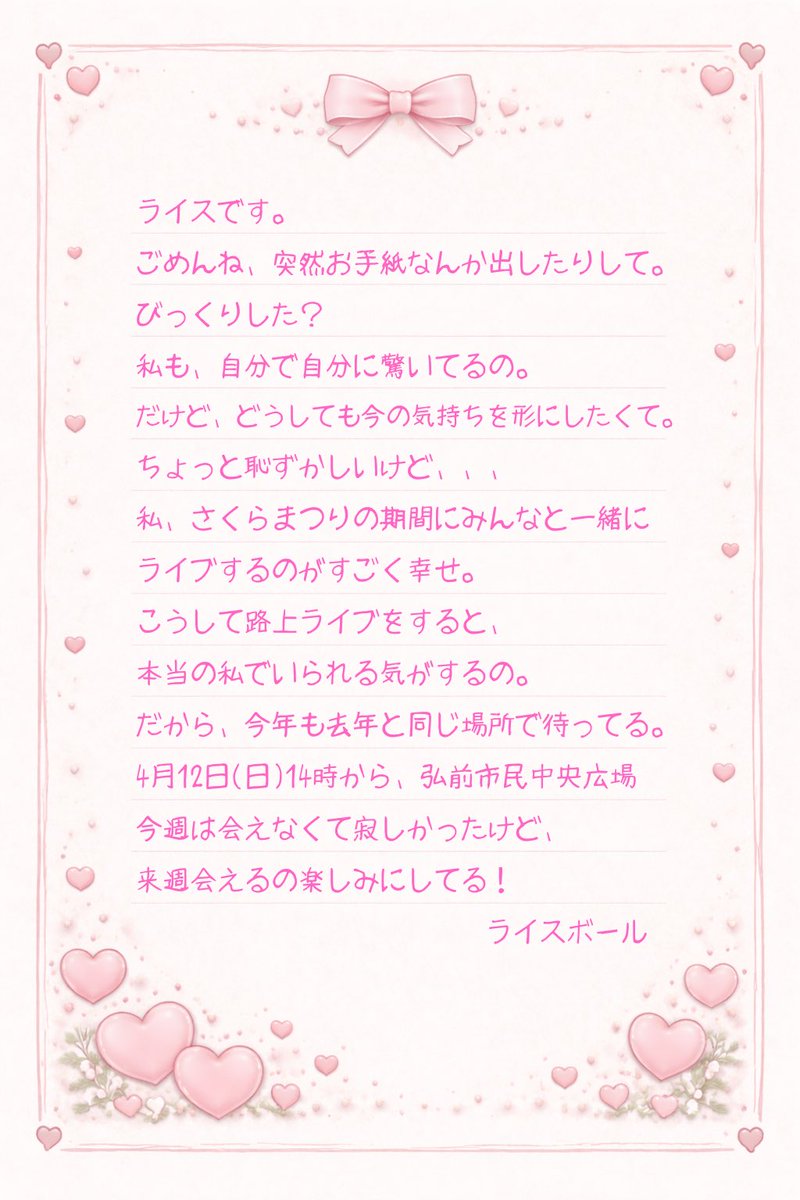 ライスです。
ごめんね、突然お手紙なんか出したりして。
びっくりした？
私も、自分で自分に驚いてるの。
だけど、どうしても今の気持ちを形にしたくて。
ちょっと恥ずかしいけど、、、
私、さくらまつりの期間にみんなと一緒に
ライブするのがすごく幸せ。
こうして路上ライブをすると、
本当の私でいられる気がするの。
だから、今年も去年と同じ場所で待ってる。
4月12日(日)14時から、弘前市民中央広場
今週は会えなくて寂しかったけど、
来週会えるの楽しみにしてる！
ライスボール